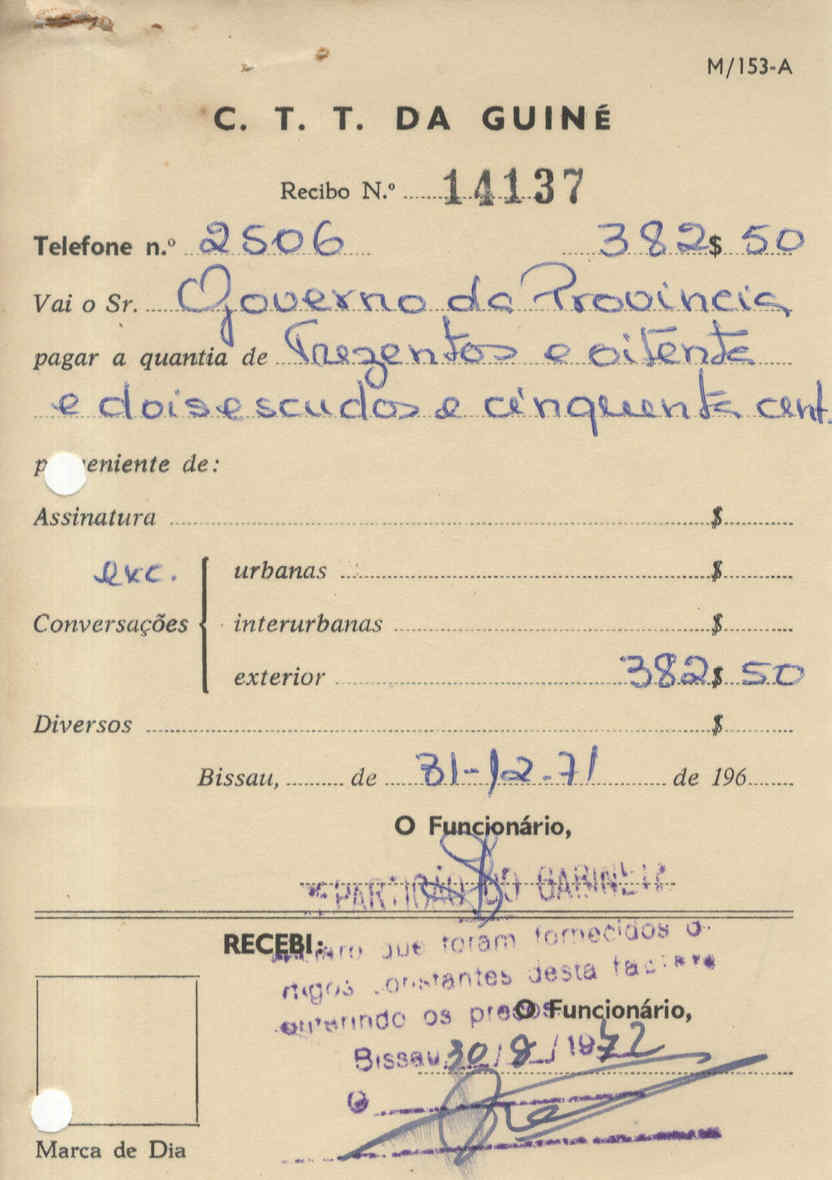 M/153-A
C. T. T. DA GUINÉ
Recibo N.º 14137
Telefone n.º 2506 382$50
Vai o Sr. Governo da Provincia
pagar a quantia de Trezentos e oitenta
e dois escudos e cinquenta cent.
p eniente de:
Assinatura $
exc. urbanas $
Conversações interurbanas $
exterior 382$50
Diversos $
Bissau, de 31-12-71 de 196
O Funcionário,
REPARTIÇÃO DO GABINETE
RECEBI:
que foram fornecidos o
constantes desta factura
os preços
O Funcionário,
Bissau, 30/8/1972
O
Marca de Dia